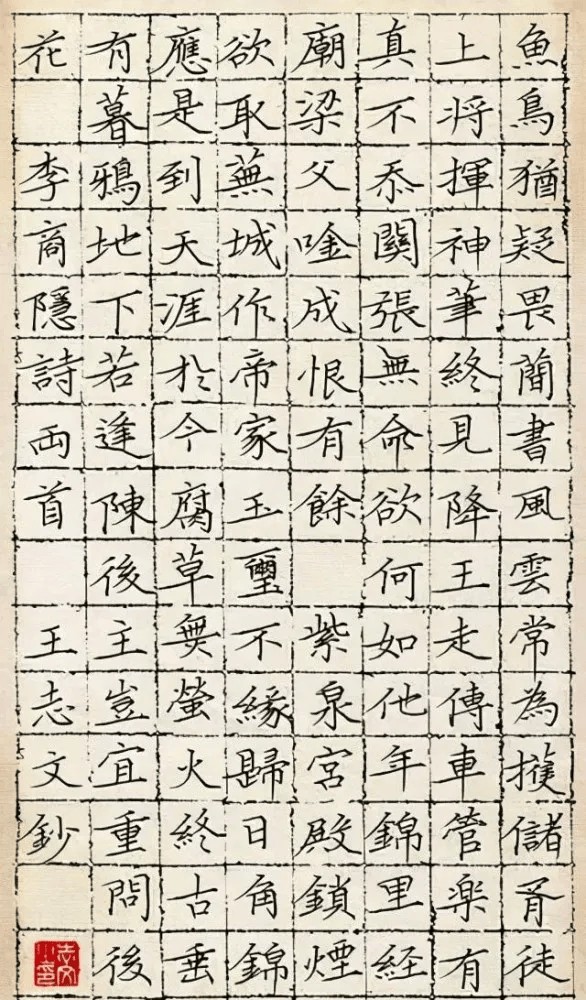 魚鳥猶疑畏簡書風雲常為護儲胥徒
上将揮神筆終見降王走傳車管楽有
真不忝關張無命欲何如他年錦里経
廟梁父唫成恨有餘 紫泉宮殿鎖煙
欲取蕪城作帝家玉璽不緣歸日角錦
應是到天涯於今腐草無螢火終古垂
有暮鴉地下若逢陳後主豈宜重問後
花 李商隱詩両首 王志文鈔
志文小印